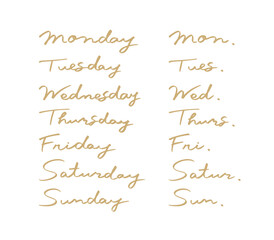 Monday Mon.
Tuesday Tues.
Wednesday Wed.
Thursday Thurs.
Friday Fri.
Saturday Satur.
Sunday Sun.